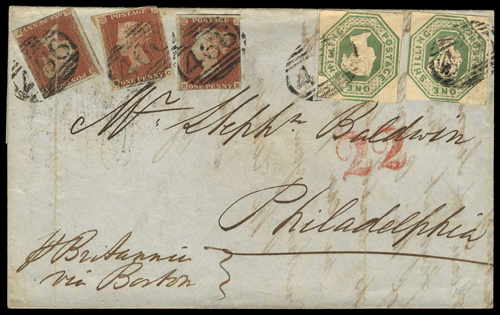 ONE PENNY
ONE PENNY
466
ONE PENNY
ONE SHILLING
POSTAGE
ONE SHILLING
POSTAGE
Mr. Steph.n Baldwin
22
Philadelphia
pr Britannia
via Boston